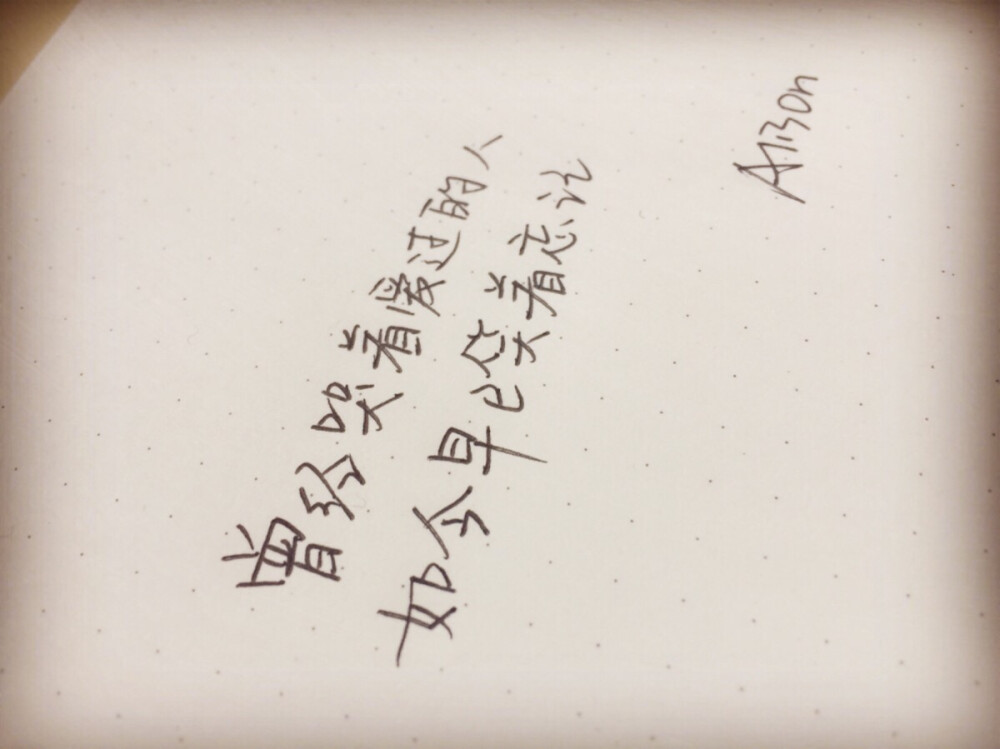 曾经哭着爱过的人
如今早已笑着忘记
Alison